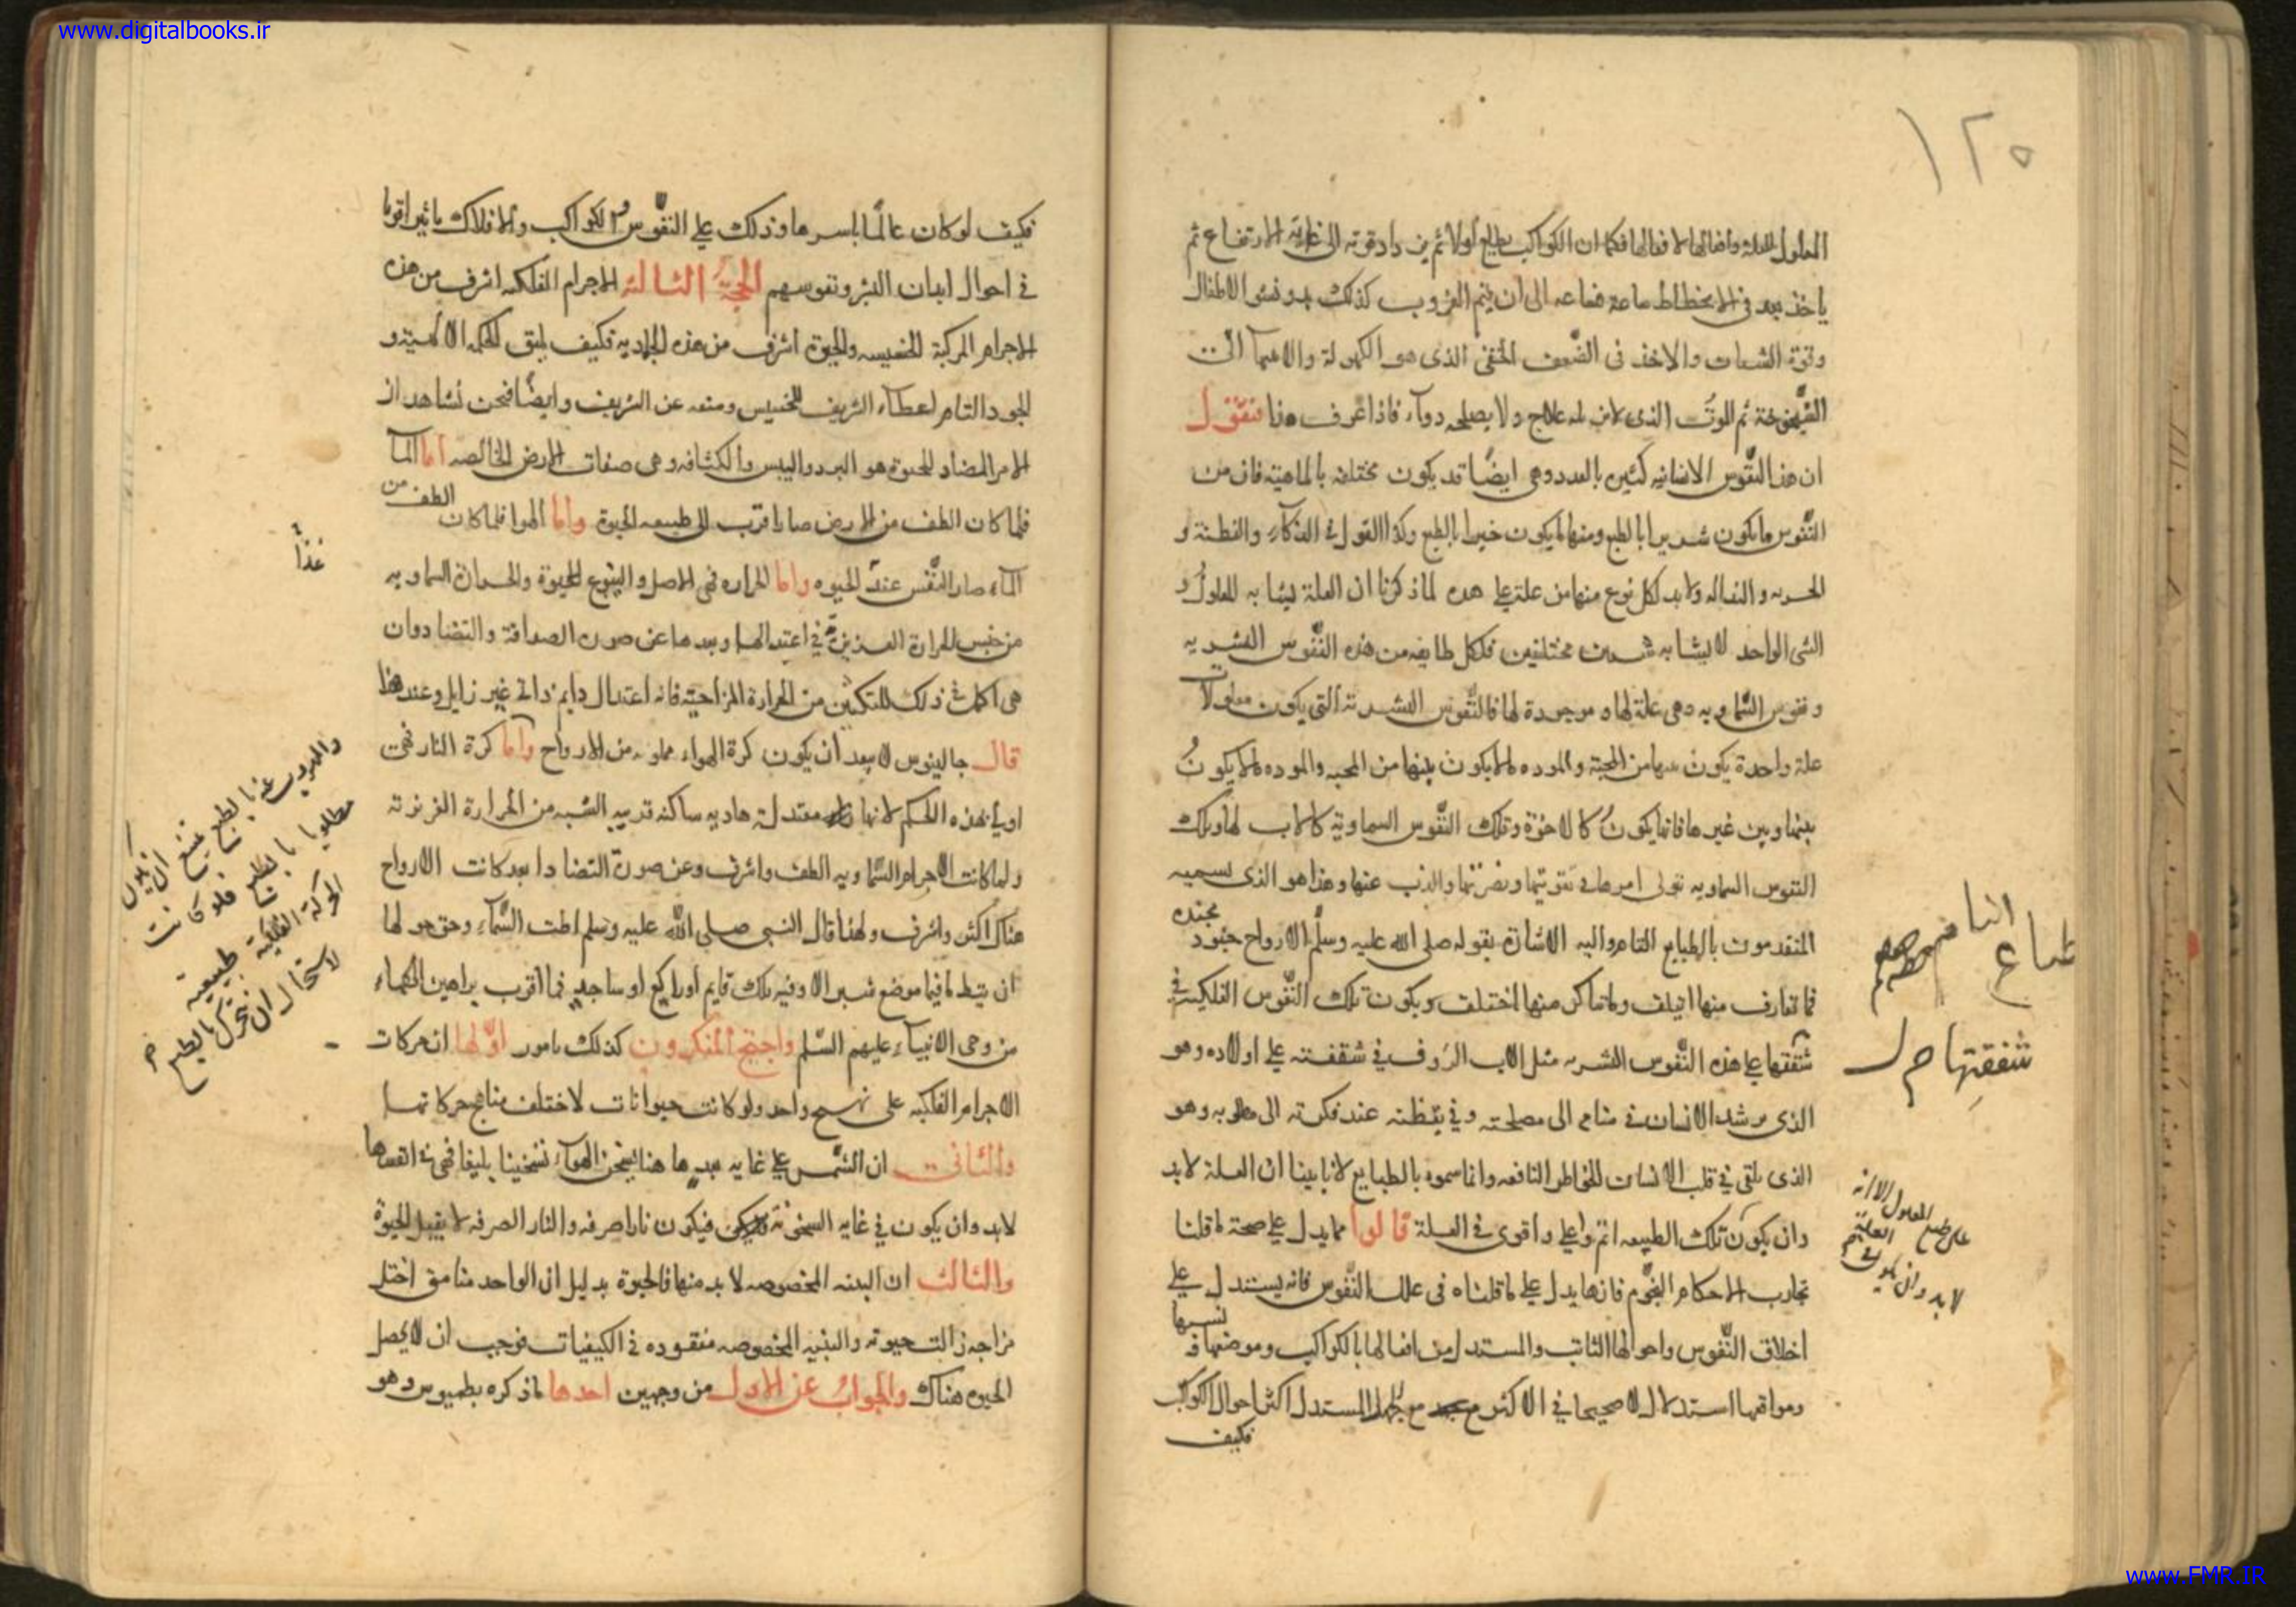 www.digitalbooks.ir
١٢٥
المعلول للعلة وافعالها لافعالها فكما ان الكواكب يطلع اولا ثم يزداد قوته الى غاية الارتفاع ثم
ياخذ بعد في الانحطاط ساعة فساعة الى ان يتم الغروب كذلك الاطفال
وقوة الشباب والاخذ في الضعف الخفي الذي هو الكهولة
الشيخوخة ثم الموت الذي علاج ولا يصلحه دواء فاذا عرف هذا فنقول
ان هذا النفوس الانسانيه كثيره بالعدد وهي ايضا قد يكون مختلفة بالماهية فان من
النفوس ما يكون شريرا بالطبع ومنها ما يكون خيرا بالطبع وكذا القول في الذكاء والفطنة و
ولا بد لكل نوع منها من علة على حده لما ذكرنا ان العلة يشابه المعلول و
الشي الواحد لا يشابه شيين مختلفين فلكل طايفه من هذه النفوس البشريه
ونفوس السماويه وهي علة لها و موجودة لها فالنفوس البشرية التي يكون معلولات
علة واحدة يكون بينها من المحبة والموده ما لا يكون بينها من المحبه والموده ما لا يكون
بينها وبين غيرها فانها يكون كالاخوة وتلك النفوس السماوية كالاب لها وتلك
النفوس السماويه تولى امرها في تقويتها ونصرتها والذب عنها وهذا هو الذي يسميه
المتقدمون بالطباع التام واليه الاشارة بقوله صلى الله عليه وسلم الارواح جنود مجنده
فما تعارف منها ائتلف وما تناكر منها اختلف ويكون تلك النفوس الفلكية في
شفقتها على هذه النفوس البشريه مثل الاب الرؤف في شفقته على اولاده وهو
الذي يرشد الانسان في منامه الى مصلحته وفي يقظته عند فكرته الى مطلوبه وهو
الذي يلقى في قلب الانسان الخواطر النافعه وانما سموه بالطبايع لانا بينا ان العلة لابد
وان يكون تلك الطبيعه اتم واعلى واقوى في العلة قالوا مما يدل على صحة ما قلنا
تجارب الاحكام النجوم فانها يدل على ما قلناه في علل النفوس فانه يستدل على
اخلاق النفوس واحوالها الثابت والمستدل من افعالها بالكواكب ومواضعها
ومواقعها استدلالا صحيحا في الاكثر مع جهل المستدل اكثر احوال الكواكب
فكيف
طباع
شفقتها
المعلول الا انه
على طبع العلة
لا بد وان يكون
فكيف لو كان عالما باسرها وذلك على النفوس الكواكب والافلاك تاثيرا قويا
في احوال ابدان البشر ونفوسهم الحجة الثالثة الاجرام الفلكيه اشرف من هذه
الاجرام المركبة الخسيسه والحيوة اشرف من هذه الجماديه فكيف يليق للحكمه الالهية و
الجود التام اعطاء الشريف للخسيس ومنعه عن الشريف وايضا فنحن نشاهد ان
الامر المضاد للحيوة هو البرد واليبس والكثافه وهي صفات الارض الخالصه اما الماء
فلما كان الطف من الارض صار اقرب الى طبيعه الحيوة واما الهوا فلما كان الطف من
الماء صار النفس عند الحيوه واما الحراره فهي الاصل والينبوع للحيوة والحرارة السماويه
من جنس الحرارة الغريزية في اعتدالها وبعدها عن صورة الصداقة والتضاد وان
هي اكملت في ذلك من الحرارة المزاجية فانه اعتدال دايم ذاتي غير زايل وعند هذا
قال جالينوس لا يبعد ان يكون كرة الهواء مملوه من الارواح واما كرة النار فهي
اولى بهذه الحكم لانها معتدلة هاديه ساكنه قريبه الشبه من الحرارة الغريزية
ولما كانت الاجرام السماويه الطف واشرف وعن صورة التضاد ابعد كانت الارواح
هناك اكثر واشرف ولهذا قال النبي صلى الله عليه وسلم اطت السماء وحق هو لها
ان يئط ما فيها موضع شبر الا وفيه ملك قايم او راكع او ساجد فما اقرب براهين الحكماء
من وحي الانبياء عليهم السلم واحتج المنكرون كذلك بامور اولها ان حركات
الاجرام الفلكيه على نهج واحد ولو كانت حيوانات لاختلف مناهج حركاتها
والثاني ان الشمس على غاية بعدها هنا يسخن الهواء تسخينا بليغا فهي في انفسها
لابد وان يكون في غايه السخونة فيكون نارا صرفه والنار الصرفه لا يقبل الحيوة
والثالث ان البنيه المخصوصه لابد منها في الحيوة بدليل ان الواحد منا متى اختل
مزاجه زالت حيوته والبنيه المخصوصه مفقوده في الكيفيات فوجب ان لا يحصل
الحيوه هناك والجواب عن الاول من وجهين احدها ما ذكره بطلميوس وهو
غذأ
والهروب عنه بالطبع يمتنع ان يكون
مطلوبا بالطبع فلو كانت
الحركة الفلكية طبيعيه
لاستحال ان يتحرك بالطبع
www.FMR.IR